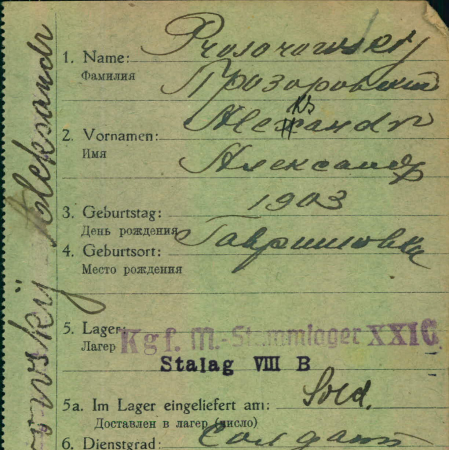 1. Name: Prosorowskij
Фамилия Прозоровский
2. Vornamen: Alexandr ks
Имя Александр
3. Geburtstag: 1903
День рождения
4. Geburtsort: Гавришовка
Место рождения
5. Lager: Kgf. M.-Stammlager XXI C
Лагер
Stalag VIII B
5a. Im Lager eingeliefert am: Sold.
Доставлен в лагер (число)
6. Dienstgrad: Солдат
owskij Aleksandr